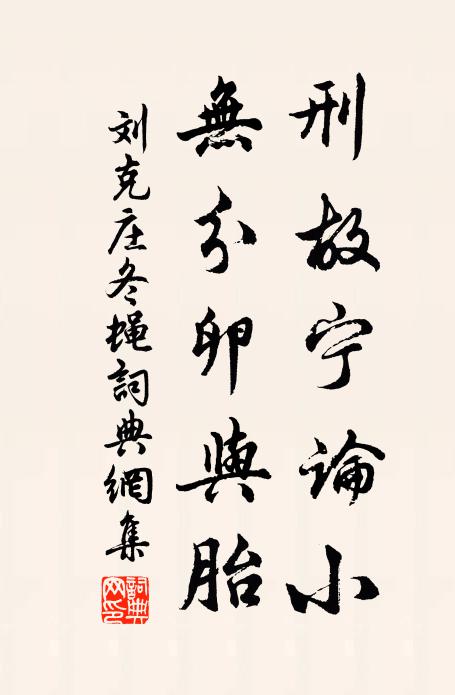 刑故宁論小
無分卵與胎
刘克庄冬蝇詞典網集
詞典网印